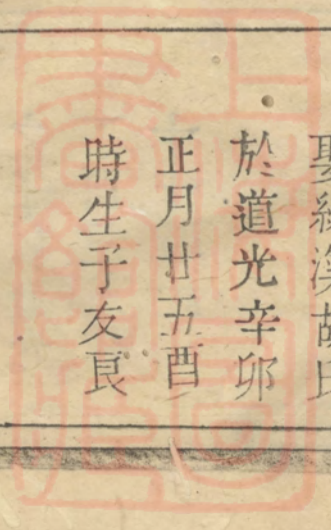 娶綠溪胡氏
於道光辛卯
正月廿五酉
時生子友良